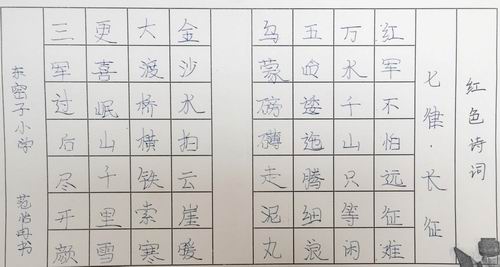 红色诗词
七律·长征
红军不怕远征难
万水千山只等闲
五岭逶迤腾细浪
乌蒙磅礴走泥丸
金沙水拍云崖暖
大渡桥横铁索寒
更喜岷山千里雪
三军过后尽开颜
东窑子小学 范怡冉书